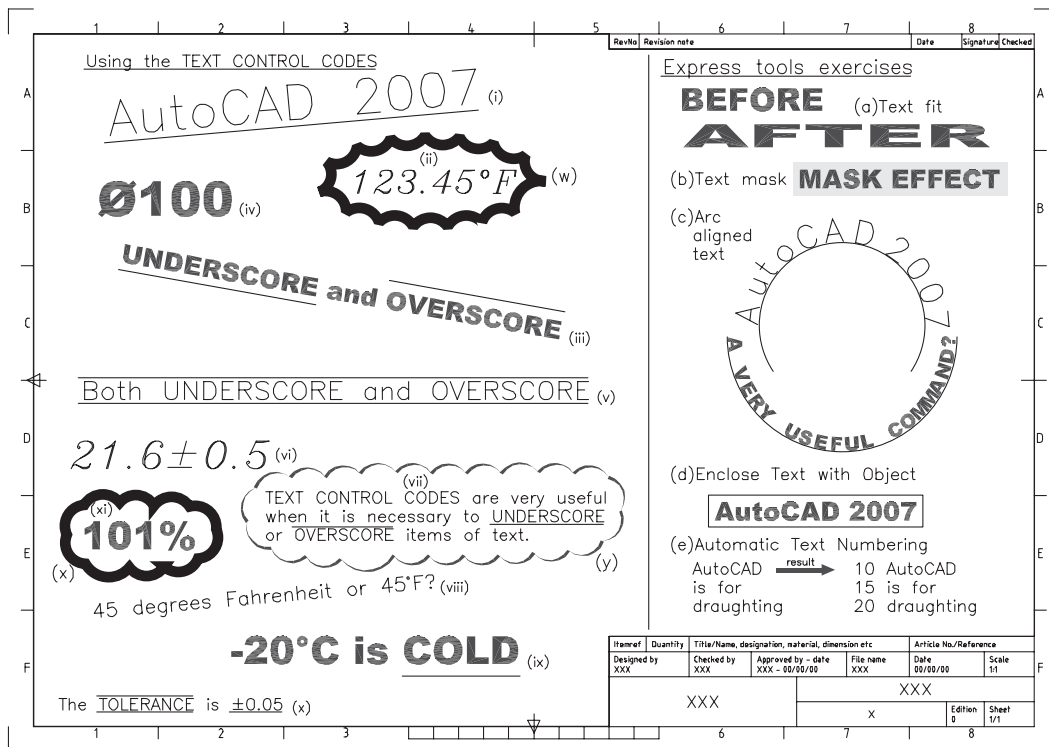 1 2 3 4 5 6 7 8
RevNo Revision note Date Signature Checked
A
B
C
D
E
F
Using the TEXT CONTROL CODES
AutoCAD 2007 (i)
(ii)
123.45°F (w)
Ø100 (iv)
UNDERSCORE and OVERSCORE (iii)
Both UNDERSCORE and OVERSCORE (v)
21.6±0.5 (vi)
(vii)
TEXT CONTROL CODES are very useful
when it is necessary to UNDERSCORE
or OVERSCORE items of text.
(y)
(xi)
101%
(x)
45 degrees Fahrenheit or 45°F? (viii)
-20°C is COLD (ix)
The TOLERANCE is ±0.05 (x)
Express tools exercises
BEFORE (a)Text fit
AFTER
(b)Text mask MASK EFFECT
(c)Arc
aligned
text
AutoCAD 2007
A VERY USEFUL COMMAND?
(d)Enclose Text with Object
AutoCAD 2007
(e)Automatic Text Numbering
AutoCAD result 10 AutoCAD
is for 15 is for
draughting 20 draughting
Itemref Quantity Title/Name, designation, material, dimension etc Article No./Reference
Designed by Checked by Approved by - date File name Date Scale
XXX XXX XXX - 00/00/00 XXX 00/00/00 1:1
XXX XXX
X Edition Sheet
0 1/1
A
B
C
D
E
F
1 2 3 4 5 6 7 8